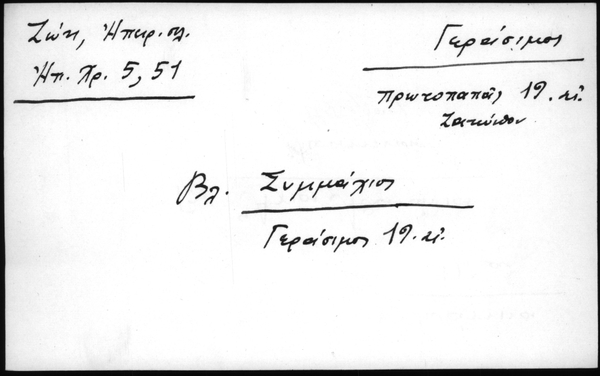 Ζώη, Ἠπειρ. σλ.
Ἠπ. Χρ. 5, 51
Γεράσιμος
πρωτοπαπᾶς 19. αἰ.
Ζακύνθου
Βλ. Συμμάχιος
Γεράσιμος 19. αἰ.